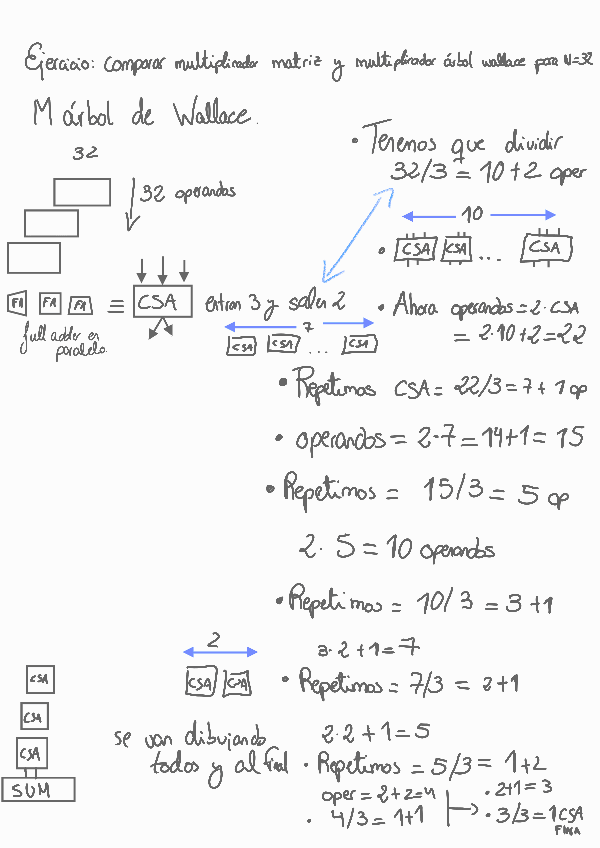 Ejercicio: Comparar multiplicador matriz y multiplicador árbol wallace para N=32
M árbol de Wallace.
32
32 operandos
FA FA FA ≡ CSA entran 3 y salen 2
full adder en
paralelo.
7
CSA CSA ... CSA
• Tenemos que dividir
32/3 = 10+2 oper
10
• CSA CSA ... CSA
• Ahora operandos = 2·CSA
= 2·10+2=22
• Repetimos CSA = 22/3 = 7 + 1 op
• operandos = 2·7 = 14+1 = 15
• Repetimos = 15/3 = 5 op
2·5 = 10 operandos
• Repetimos = 10/3 = 3+1
3·2+1=7
2
CSA CSA
• Repetimos = 7/3 = 2+1
2·2+1=5
• Repetimos = 5/3 = 1+2
oper = 2+2=4
• 4/3 = 1+1
• 2+1=3
• 3/3=1 CSA
FINAL
CSA
CSA
CSA
SUM
se van dibujando
todos y al final